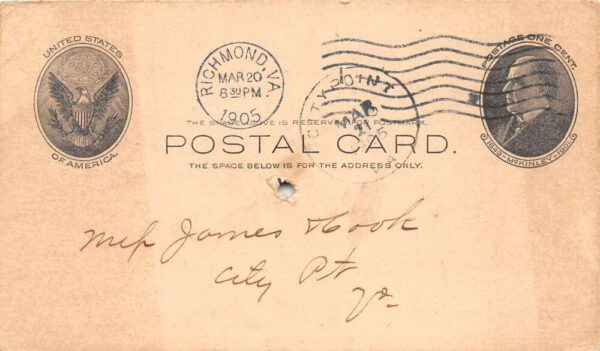 UNITED STATES
OF AMERICA.
RICHMOND, VA.
MAR 20
6 30 PM
1905
CITY POINT
MAR
POSTAGE ONE CENT.
1843-McKINLEY-1901
THE SPACE ABOVE IS RESERVED FOR POSTMARK.
POSTAL CARD.
THE SPACE BELOW IS FOR THE ADDRESS ONLY.
James & Cook
City Pt
Va.